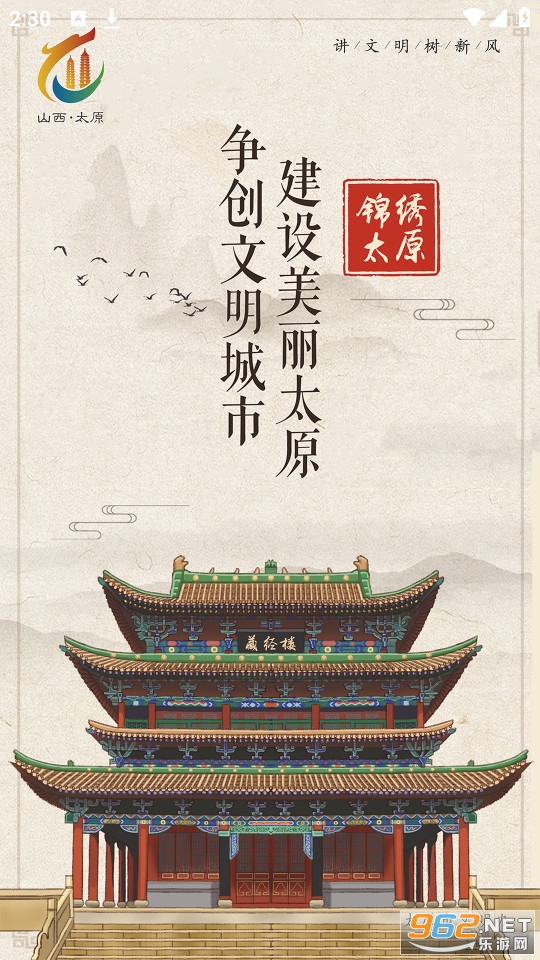 2:30
讲/文/明/树/新/风
山西·太原
锦绣
太原
建设美丽太原
争创文明城市
藏经楼
962.NET
乐游网